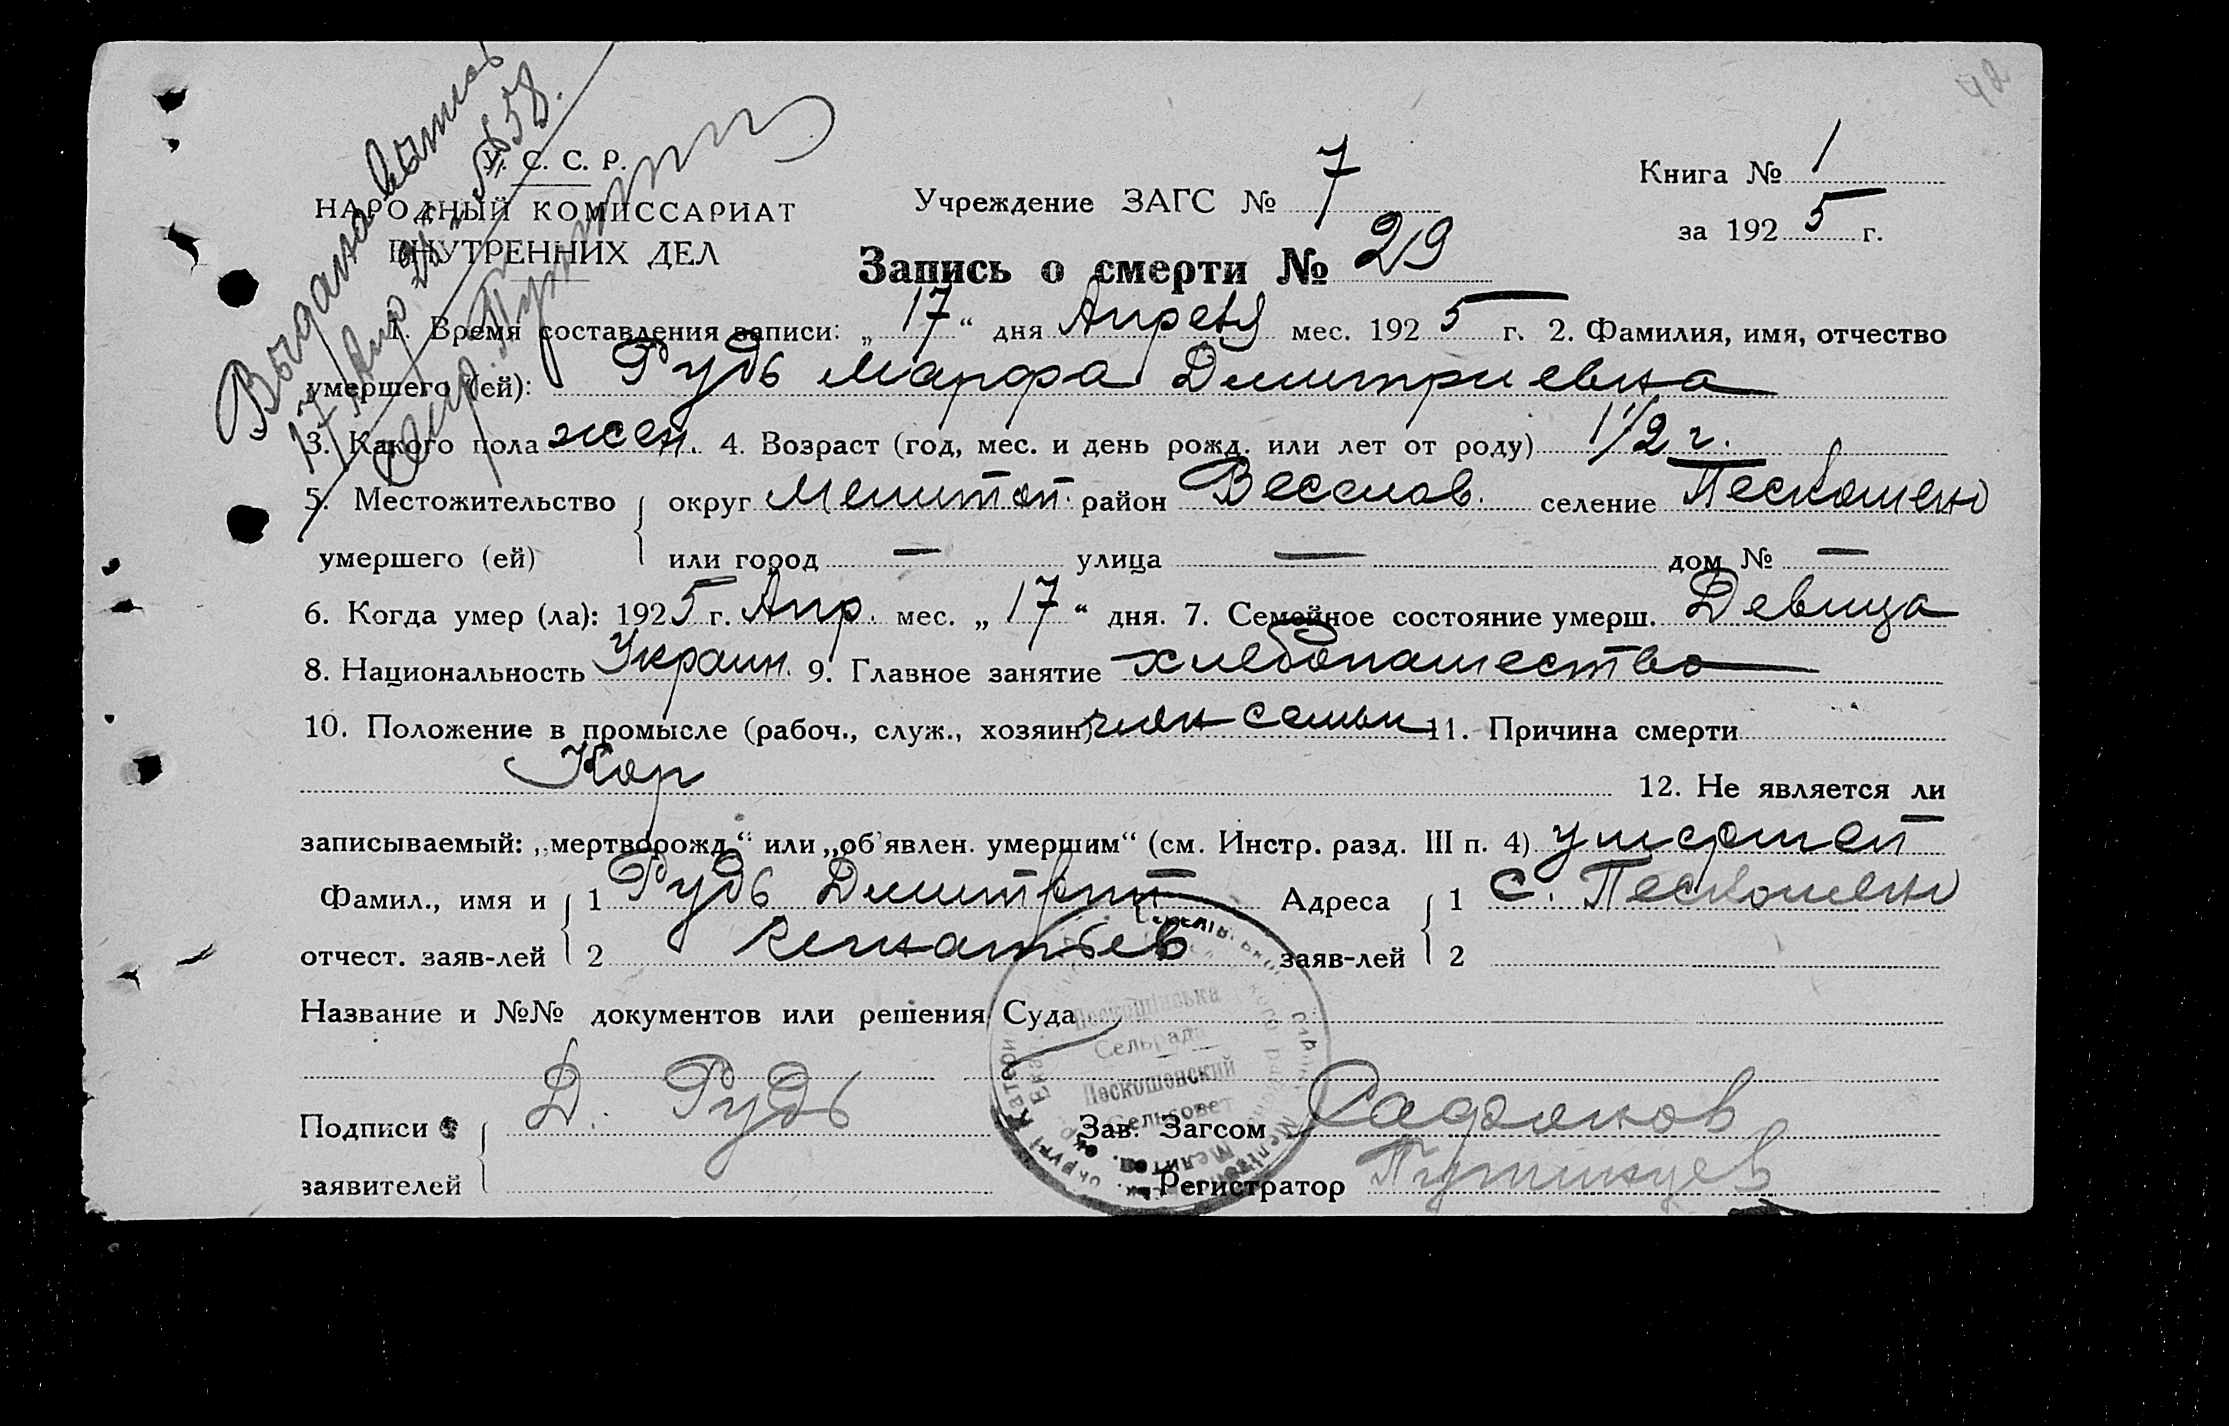 42
Выдана выпись
№ 58.
У. С. С. Р.
НАРОДНЫЙ КОМИССАРИАТ
ВНУТРЕННИХ ДЕЛ
Учреждение ЗАГС № 7
Книга № 1
за 1925 г.
Запись о смерти № 29
1. Время составления записи: „17“ дня Апреля мес. 1925 г. 2. Фамилия, имя, отчество
умершего (ей): Рудь Марфа Димитриевна
3. Какого пола жен. 4. Возраст (год, мес. и день рожд. или лет от роду) 1 1/2 г.
5. Местожительство округ Мелитоп. район Веселов. селение Пескошено
умершего (ей) или город — улица — дом № —
6. Когда умер (ла): 1925 г. Апр. мес. „17“ дня. 7. Семейное состояние умерш. Девица
8. Национальность Украин. 9. Главное занятие хлебопашество
10. Положение в промысле (рабоч., служ., хозяин) член семьи 11. Причина смерти
Кор
12. Не является ли
записываемый: „мертворожд.“ или „об'явлен. умершим“ (см. Инстр. разд. III п. 4) умершей
Фамил., имя и 1 Рудь Димитрий Адреса 1 с. Пескошено
отчест. заяв-лей 2 Игнатьев заяв-лей 2
Название и №№ документов или решения Суда
Пескошінська
Сельрада
Пескошенский
Сельсовет
Подписи Д. Рудь Зав. Загсом
заявителей Регистратор Путинцев